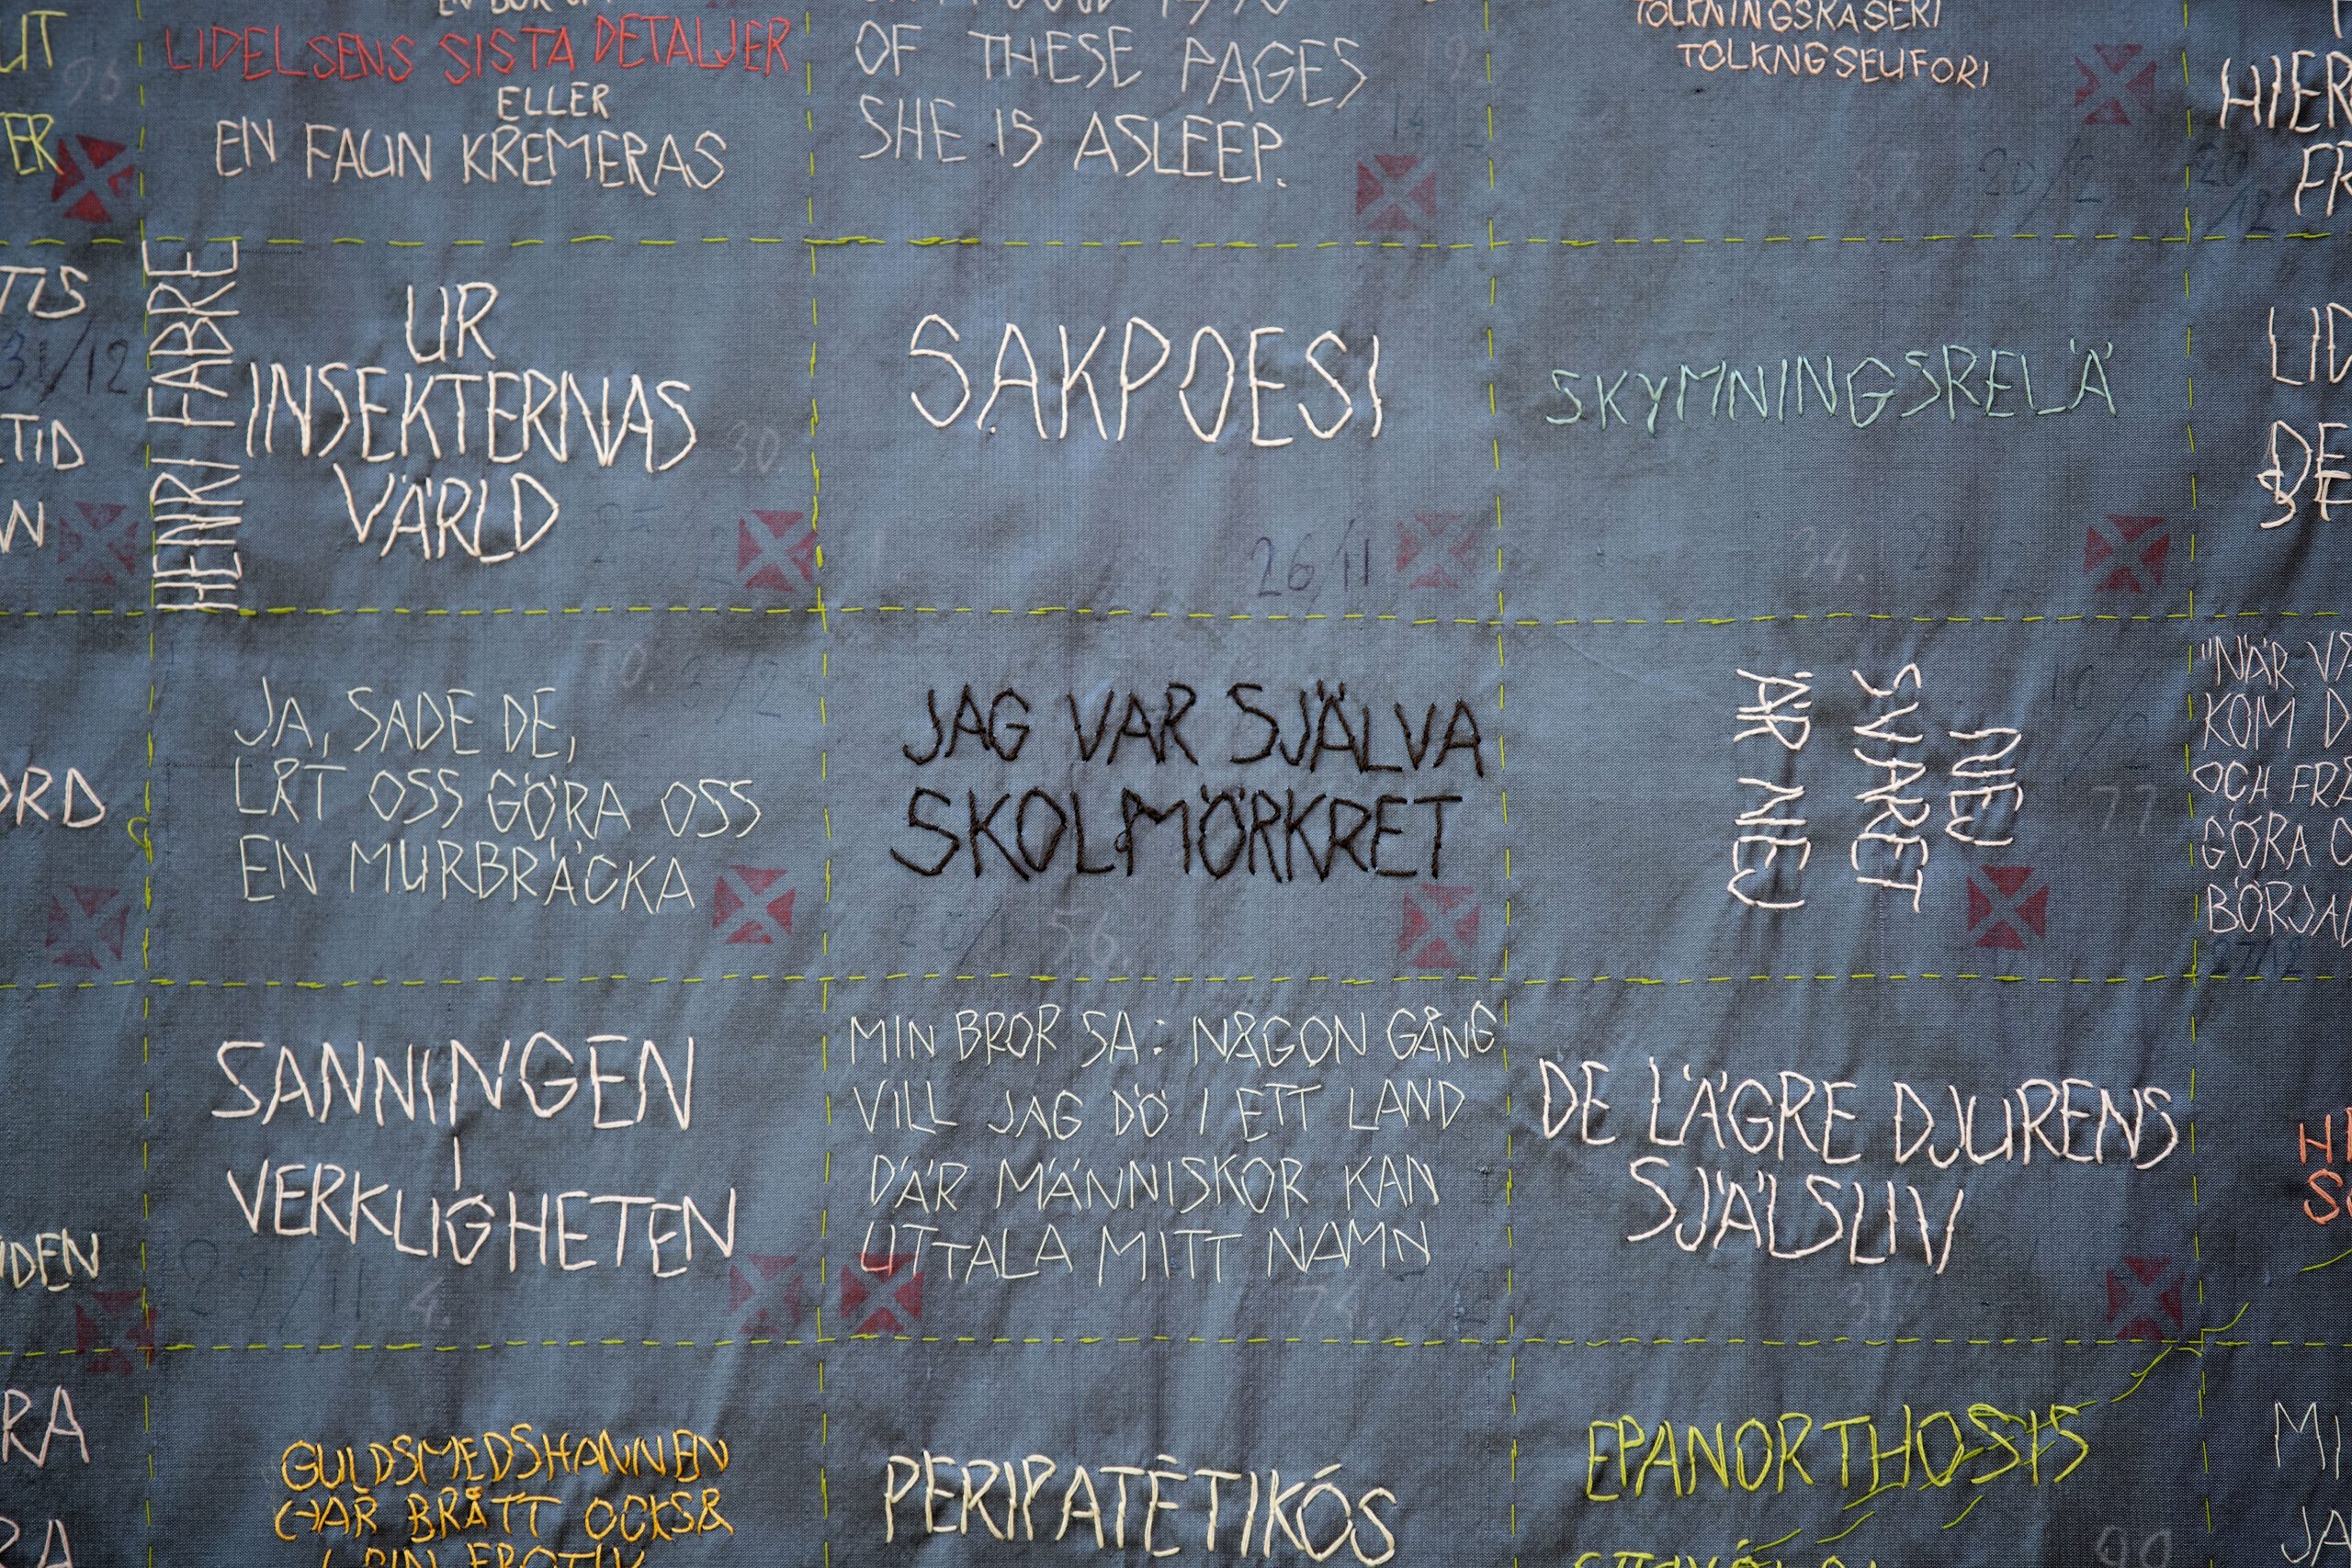 LIDELSENS SISTA DETALJER
ELLER
EN FAUN KREMERAS
OF THESE PAGES
SHE IS ASLEEP.
TOLKNINGSRASERI
TOLKNGSEUFORI
HENRI FABRE
UR
INSEKTERNAS
VÄRLD
30.
SAKPOESI
26/11
SKYMNINGSRELÄ
31/12
TID
JA, SADE DE,
LÅT OSS GÖRA OSS
EN MURBRÄCKA
JAG VAR SJÄLVA
SKOLMÖRKRET
56.
NEJ
SVARET
ÄR NEJ
77
"NÄR
KOM D
OCH FRÅ
GÖRA O
BÖRJA
27/12
SANNINGEN
I
VERKLIGHETEN
29/11
4.
MIN BROR SA: NÅGON GÅNG
VILL JAG DÖ I ETT LAND
DÄR MÄNNISKOR KAN
UTTALA MITT NAMN
DE LÄGRE DJURENS
SJÄLSLIV
31.
GULDSMEDSHANNEN
HAR BRÅTT OCKSÅ
PERIPATĒTIKÓS
EPANORTHOSIS